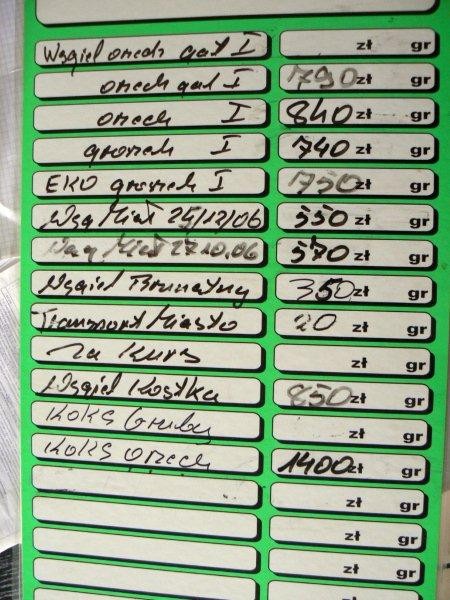 Węgiel orzech gat I zł gr
orzech gat I 790 zł gr
orzech I 840 zł gr
groszek I 740 zł gr
EKO groszek I 750 zł gr
Węg Miał 25/12/06 550 zł gr
Węg Miał 27.10.06 570 zł gr
Węgiel Brunatny 350 zł gr
Transport Miasto 20 zł gr
za kurs zł gr
Węgiel Kostka 850 zł gr
KOKS Gruby zł gr
KOKS orzech 1400 zł gr
zł gr
zł gr
zł gr
zł gr